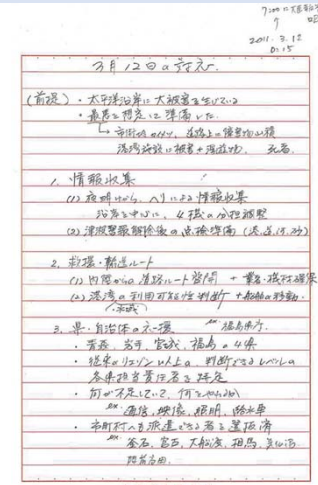 2011. 3. 12
0:15
3月12日の対応
(前提)・太平洋沿岸に大被害を生じている
・最悪を想定して準備した
1. 情報収集
(1) 夜明けから、ヘリによる情報収集
沿岸を中心に、4機の分担調整
(2) 津波警報解除後の点検準備
2. 救援・輸送ルート
(1) 内陸からの道路ルート啓開 + 業者・機材確保
(2) 港湾の利用可能性判断 + 船舶の移動
3. 県・自治体の応援 ex. 福島県庁
・青森、岩手、宮城、福島の4県
・従来のリエゾン以上の、判断できるレベルの
各県担当責任者を特定
・何が不足していて、何をやれるか
ex. 通信、映像、照明、給水車
・市町村へも派遣できる者を選抜済
ex. 釜石、宮古、大船渡、相馬、気仙沼
陸前高田